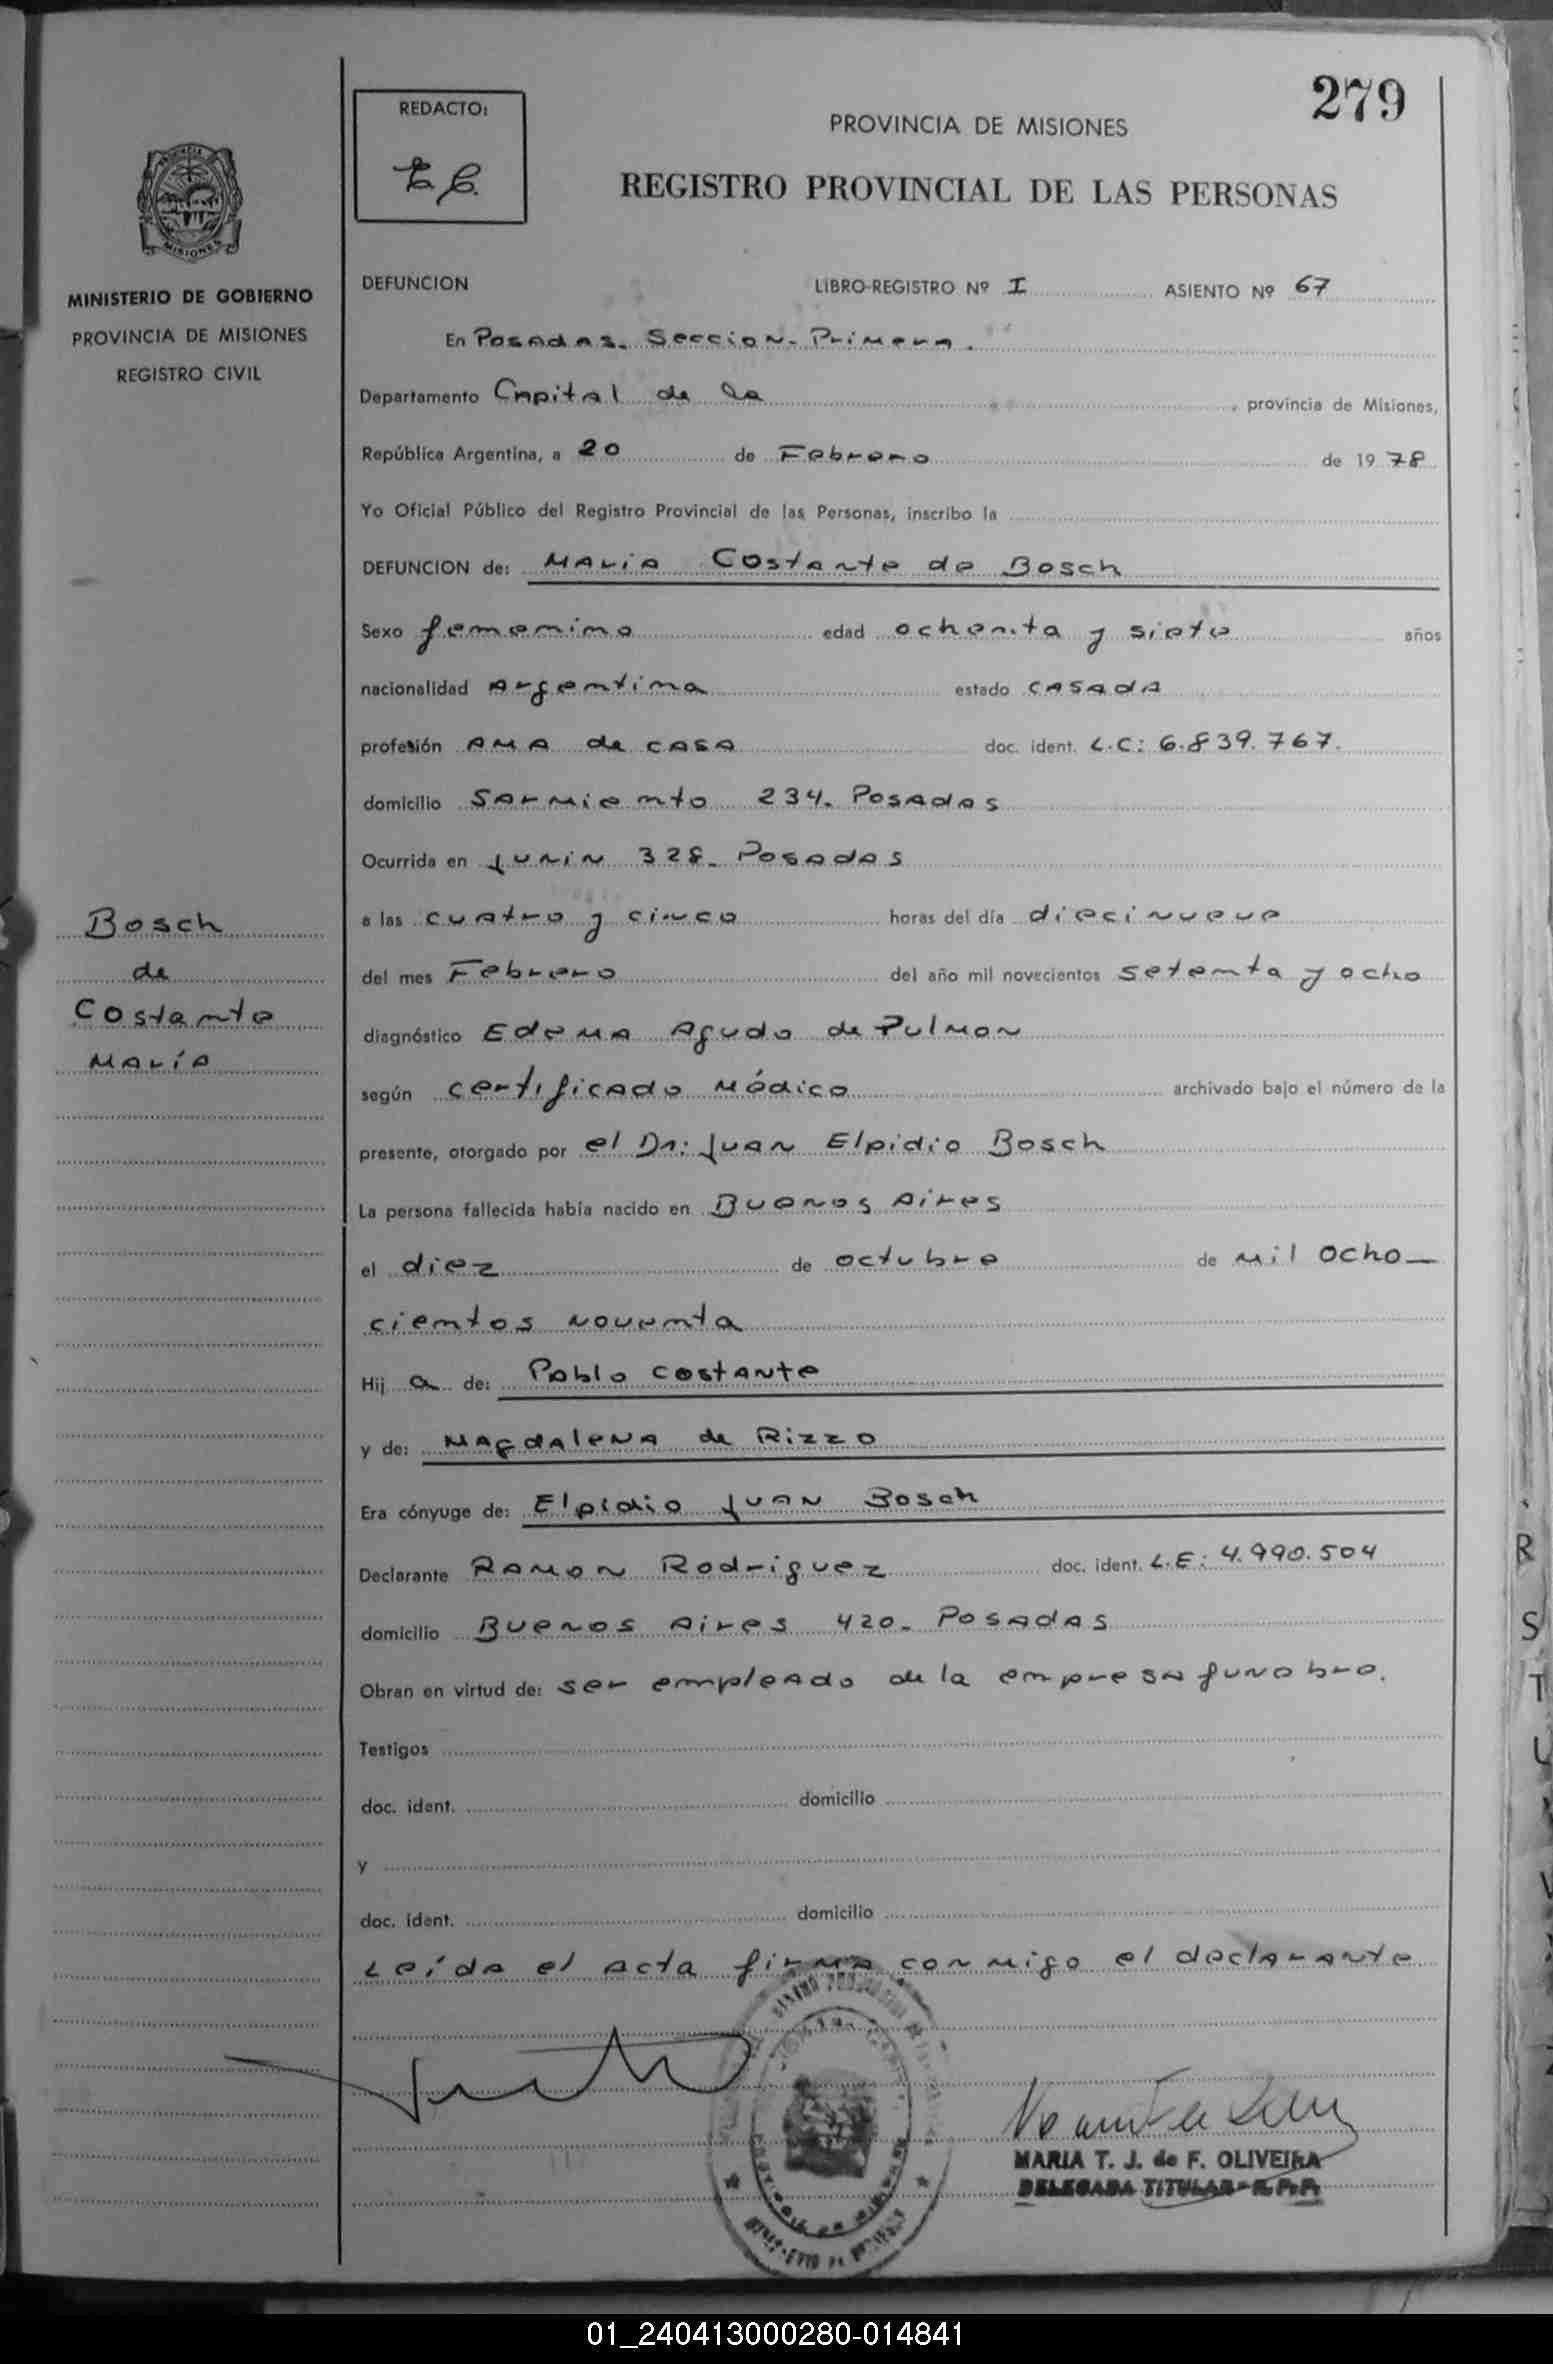 279
REDACTO:
PROVINCIA DE MISIONES
REGISTRO PROVINCIAL DE LAS PERSONAS
MISIONES
MINISTERIO DE GOBIERNO
PROVINCIA DE MISIONES
REGISTRO CIVIL
DEFUNCION LIBRO-REGISTRO Nº I ASIENTO Nº 67
En Posadas. Seccion. Primera.
Departamento Capital de la , provincia de Misiones,
República Argentina, a 20 de Febrero de 1978
Yo Oficial Público del Registro Provincial de las Personas, inscribo la
DEFUNCION de: Maria Costante de Bosch
Sexo femenino edad ochenta y siete años
nacionalidad Argentina estado casada
profesión Ama de casa doc. ident. L.C: 6.839.767.
domicilio Sarmiento 234. Posadas
Ocurrida en Junin 328. Posadas
a las cuatro y cinco horas del día diecinueve
del mes Febrero del año mil novecientos setenta y ocho
diagnóstico Edema Agudo de Pulmon
según certificado Médico archivado bajo el número de la
presente, otorgado por el Dr: Juan Elpidio Bosch
La persona fallecida había nacido en Buenos Aires
el diez de octubre de mil ocho—
cientos noventa
Hij a de: Pablo Costante
y de: Magdalena de Rizzo
Era cónyuge de: Elpidio Juan Bosch
Declarante Ramon Rodriguez doc. ident. L.E: 4.990.504
domicilio Buenos Aires 420. Posadas
Obran en virtud de: ser empleado de la empresa funebre.
Testigos
doc. ident. domicilio
y
doc. ident. domicilio
Leída el acta firma conmigo el declarante
Bosch
de
Costante
María
MARIA T. J. de F. OLIVEIRA
DELEGADA TITULAR - R.P.P.
R
S
T
U
01_240413000280-014841